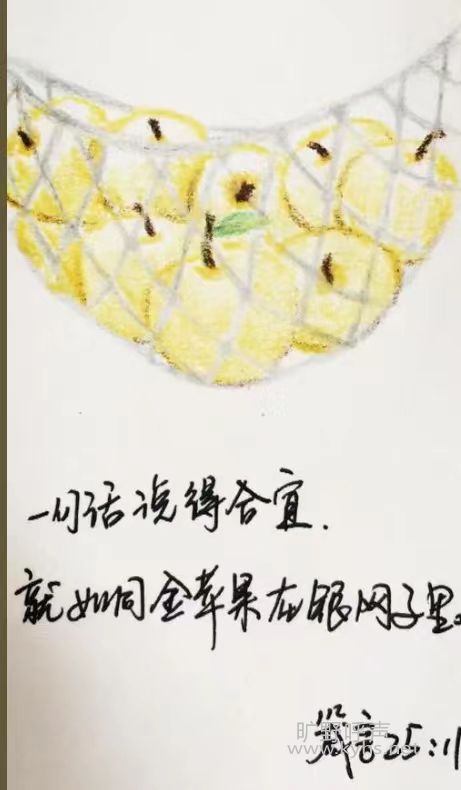 一句话说得合宜.
就如同金苹果在银网子里。
箴言25:11
旷野呼声
www.kyhs.net